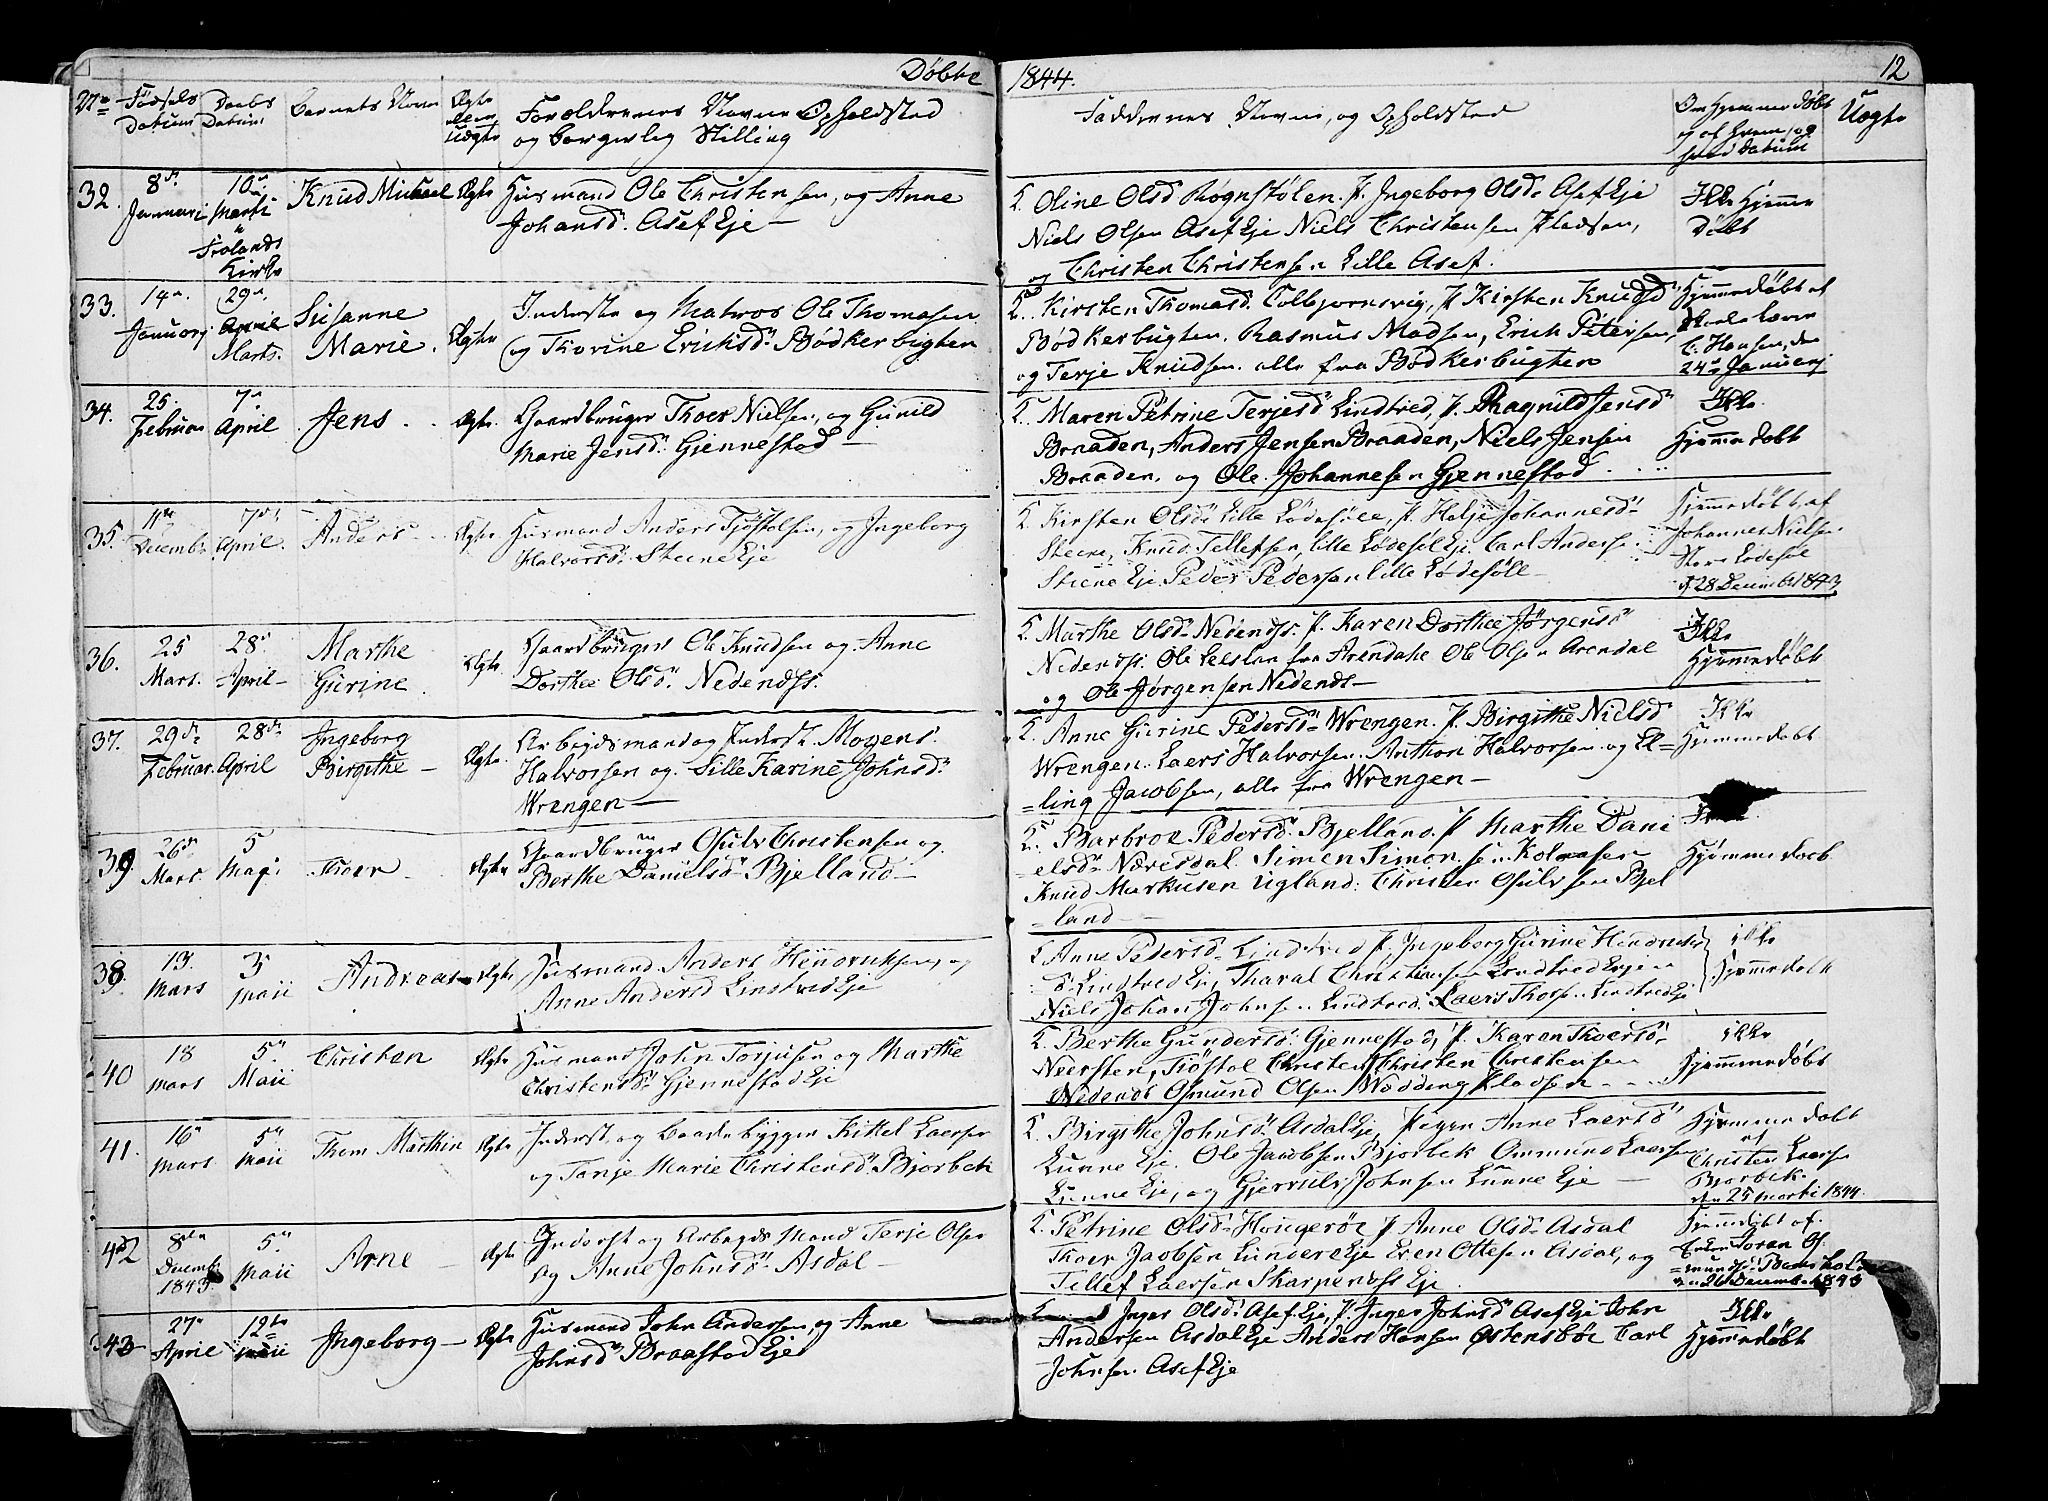 Døbte
1844.
12
No Fødsels Datum
Daabs Datum
Barnets Navn
Ægte eller Uægte
Forældrenes Navne Opholdsted
og borgerlig Stilling
Faddernes Navne, og Opholdsted
Om Hjemme døbt
og af hvem, og
hvad Datum
Uægte
32. 8de Januari
10de Marti
Frolands Kirke
Knud Michael
Ægte
Husmand Ole Christensen, og Anne
Johansd. Asef Eje
Oline Olsd Rognstølen. P. Ingeborg Olsd. Asef Eje
Niels Olsen Asef Eje Niels Christensen Pladsen,
og Christen Christensen Lille Asef.
Ikke Hjemme
Døbt
33. 14de Januarj
29de April Marts.
Susanne
Marie.
Ægte
Inderste og Matros Ole Thomasen
og Thorine Erichsd. Bødkerbugten
Kirsten Thomasd. Colbjornsvig, P. Kirsten Knudsd
Bødkerbugten. Rasmus Madsen, Erich Petersen,
og Terje Knudsen. alle fra Bødkerbugten
Hjemmedøbt af
Skolelærer
C. Hansen, den
24de Januarj
34. 25. Februar
7de April
Jens
Ægte
Gaardbruger Thoer Nielsen, og Gunild
Marie Jensd. Gjennestad
Maren Petrine Terjesd Lindtved, P. Ragnild Jensd
Braaden, Anders Jensen Braaden, Niels Jensen
Braaden. og Ole Johannesen Gjennestad
Ikke
Hjemmedobt
35. 11te Decemb.
7de April.
Anders
Ægte
Husmand Anders Tjøstolsen, og Ingeborg
Halvorsd. Steene Eje
Kirsten Olsd. Lille Lødesøle, P. Helje Johannesd.
Steene, Knud Tellefsen, Lille Lødesøl Eje. Carl Anderse
Stiene Eje. Peder Pedersen Lille Lødesøll
Hjemmedøbt, af
Johannes Nielsen
Store Lødesøl
d. 28 Decemb. 1843
36. 25 Mars.
28de April
Marthe
Gurine
Ægte
Gaardbruger Ole Knudsen og Anne
Dorthea Olsd. Nedends.
Marthe Olsd. Nedends. P. Karen Dorthea Jørgensd
Nedends. Ole fra Arendahl Ole Olsen Arendal
og Ole Jørgensen Nedends
Ikke
Hjemmedøbt
37. 29de Februar.
28de April
Ingeborg
Birgithe
Ægte
Arbejdsmand og Inderst Mogens
Halvorsen og Sille Karine Johnsd.
Wrengen
Anne Gurine Pedersd. Wrengen. P. Birgithe Nielsd
Wrengen. Laers Halvorsen. Anthon Halvorsen og El=
=ling Jacobsen, alle fra Wrengen
Ikke
Hjemmedobt
39. 26de Mars.
5 Maji
Thoer
Ægte
Gaardbruger Osulv Christensen og
Berthe Danielsd. Bjelland
Barbroe Pedersd. Bjelland. P. Marthe Dani
=elsd. Næresdal. Simen Simonsen
Knud Markusen Ugland. Christen Osulvsen Bjel
=land
Hjemmedoeb
38. 13. Mars
5 Maii
Andreas
Ægte
Husmand Anders Hendriksen, og
Anne Andersd Linstved Eje
Anne Pedersd. Lindtved P. Ingeborg Gurine Hendriks
d. Lindtved Eje, Tharal Christiansen Lindtved Ejen
Niels Johan Johnsen Lindtved. Laers Thorsen Lindtved Eje
ikke
Hjemmedobt
40 18 mars
5te Maii
Christen
Ægte
Husmand John Torjusen og Marthe
Christensd. Gjennestad Eje
Berthe Gundersd. Gjennestad, P. Karen Thoersd.
Neersten, Tiöstol Christen Christen Christensen
Nedends Osmund Olsen Wadding Pladsen
ikke
Hjemmedøbt
41. 16de mars
5te Maii
Thom Marthin
Ægte
Inderst og Baadebygger Kittel Laersen
og Tonje Marie Christensd. Bjorbek
Birgithe Johnsd. Asdal Eje, Pigen Anne Laersd
Lunne Eje. Ole Jacobsen Bjorbek Ommund Laersen
Lunne Eje, og Gjerruls Johnsen Lunne Eje
Hjemmedobt
af
Christen Laerse
Bjorbek.
den 25 marti 1844
42 8de Decemb. 1843
5te Maii
Arne
Ægte
Inderst og Arbejds mand Terje Olsen
og Anne Johnsd. Asdal
Petrine Olsd. Hougerøe P. Anne Olsd. Asdal
Thoer Jacobsen Lundere Eje Even Ottesen Asdal, og
Tellef Laersen Skarpends Eje.
Hjemmedøbt af
1843
43 27de April
12te Maii
Ingeborg
Ægte
Husmand John Andersen, og Anne
Johnsd. Braastad Eje
Inger Olsd. Asef Eje, P. Inger Johnsd Asef Eje John
Andersen Asdal Eje Anders Hansen Østensbøe Carl
Johnsen Asef Eje
Ikke
Hjemmedøbt